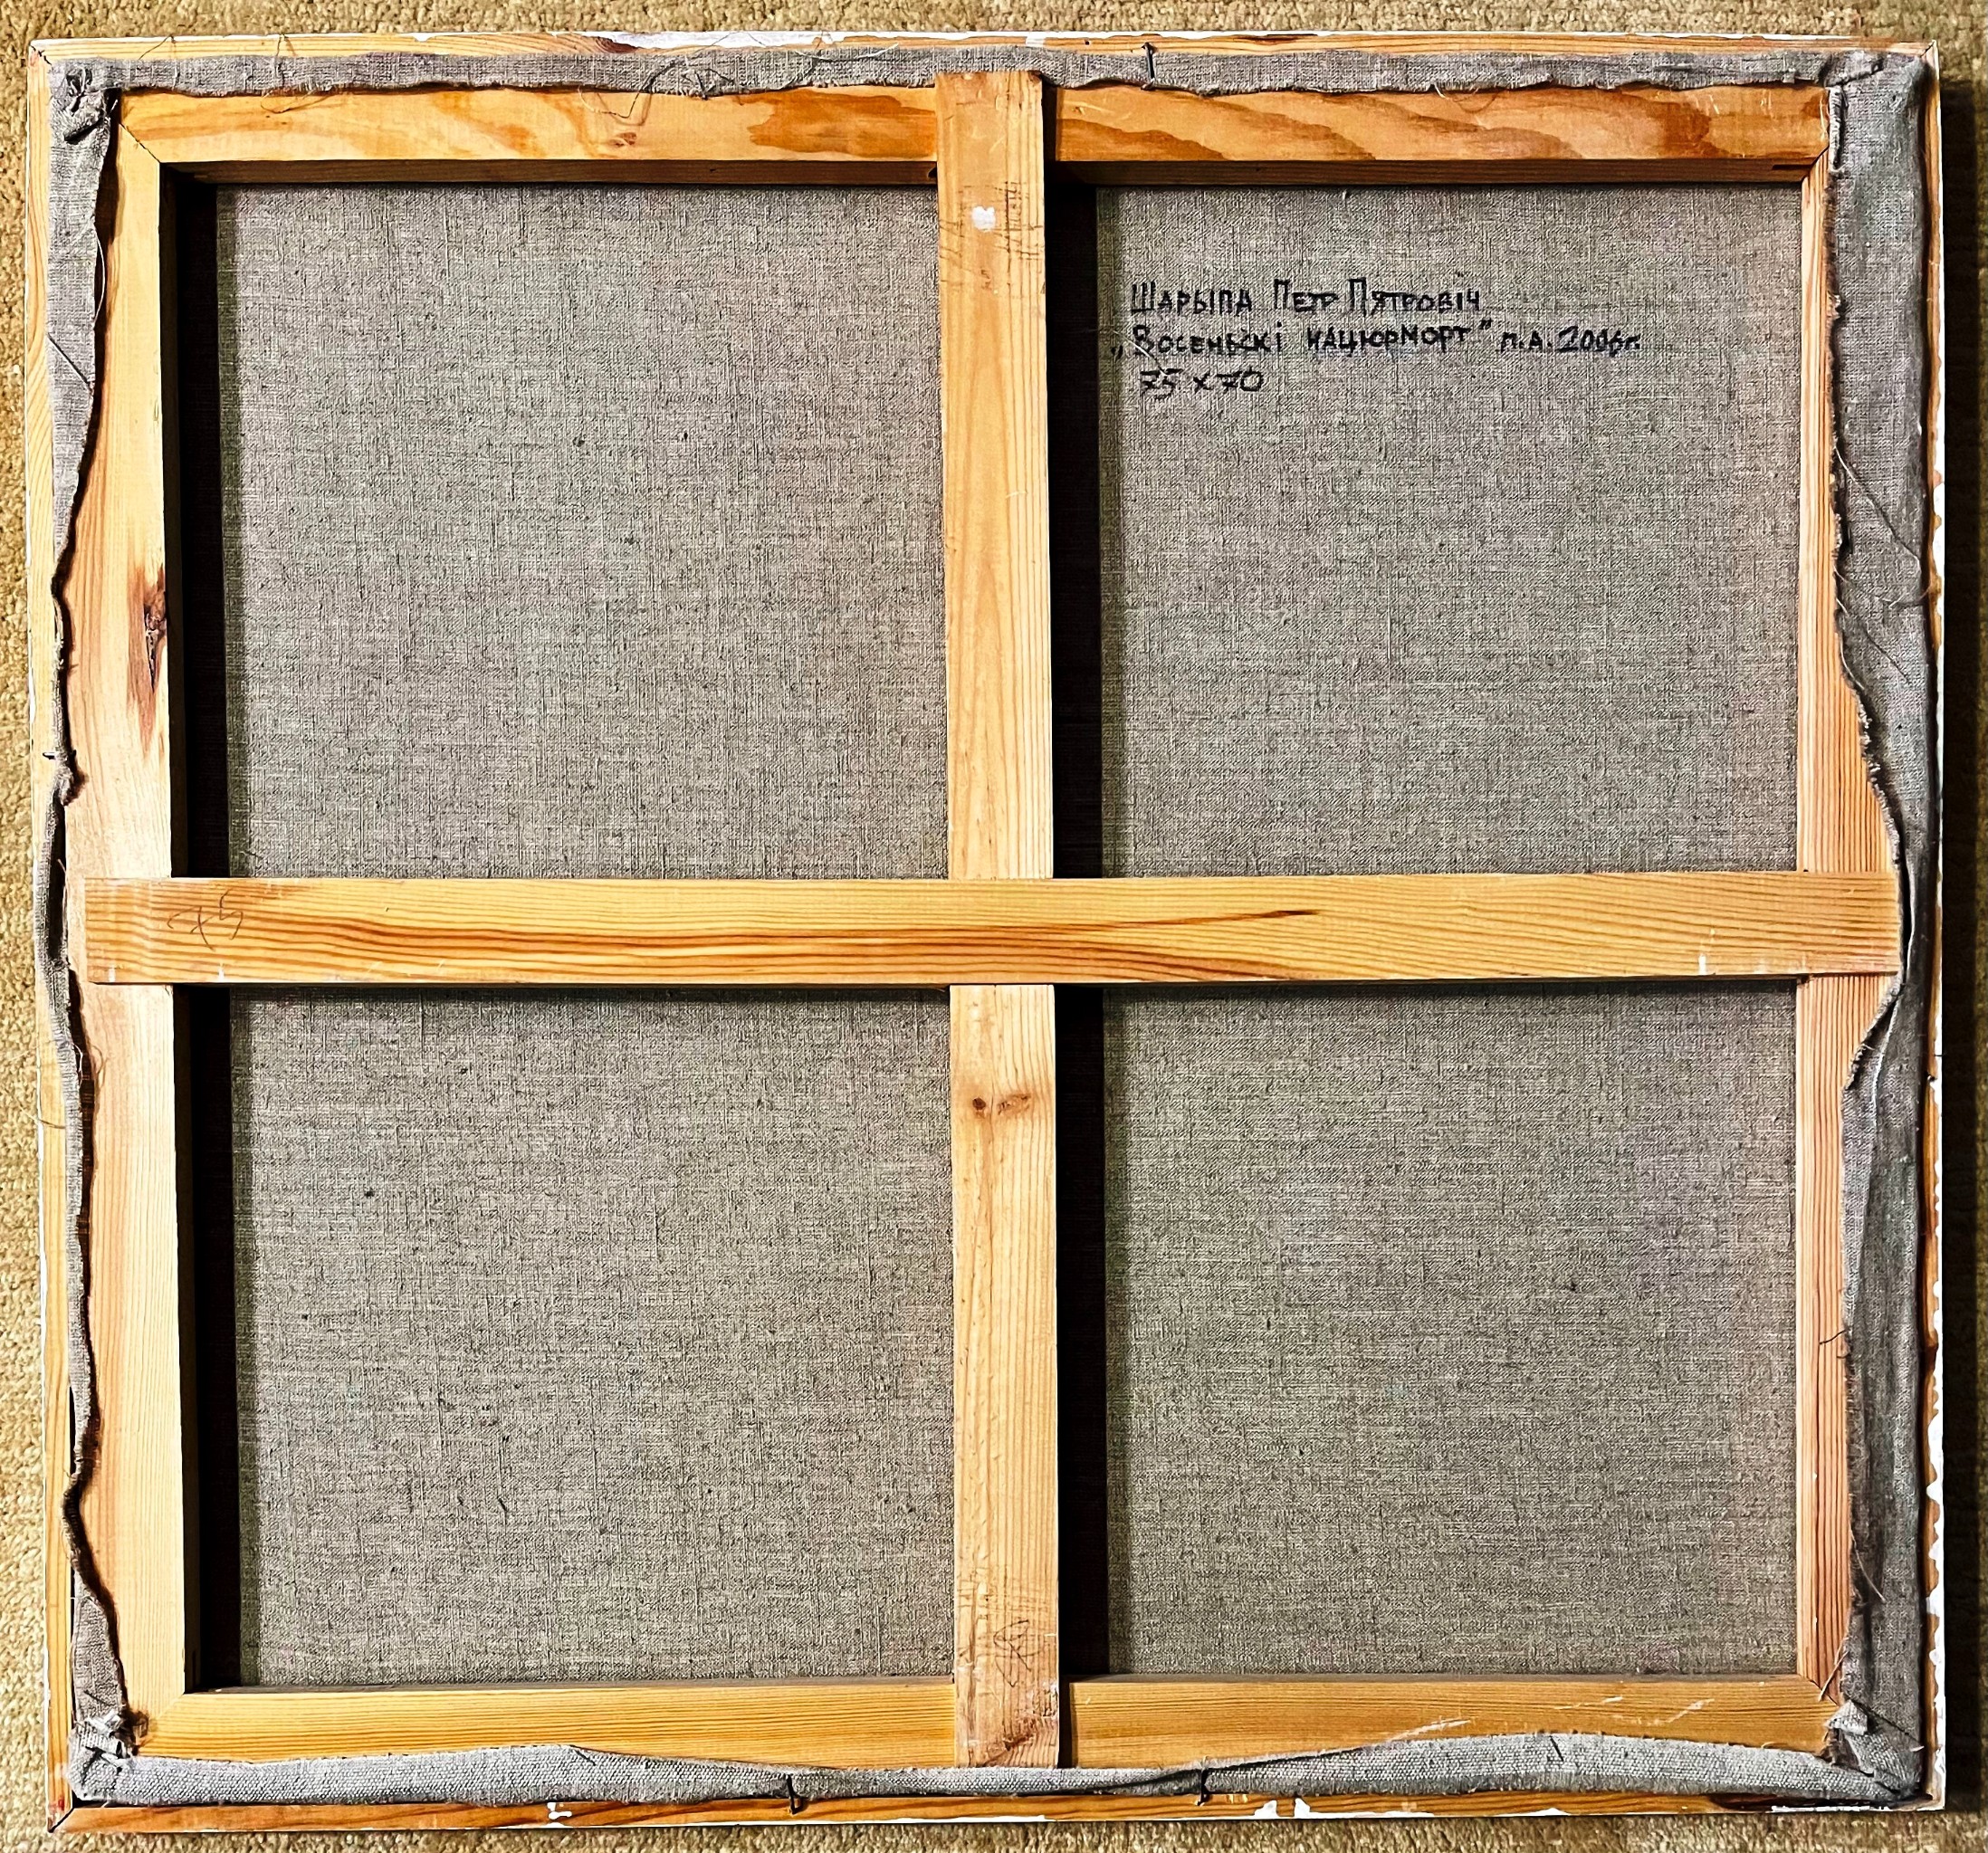 Шарыпа Петр Пятровіч
„Восеньскі нацюрморт” п.а. 2006г.
75 х 70
75